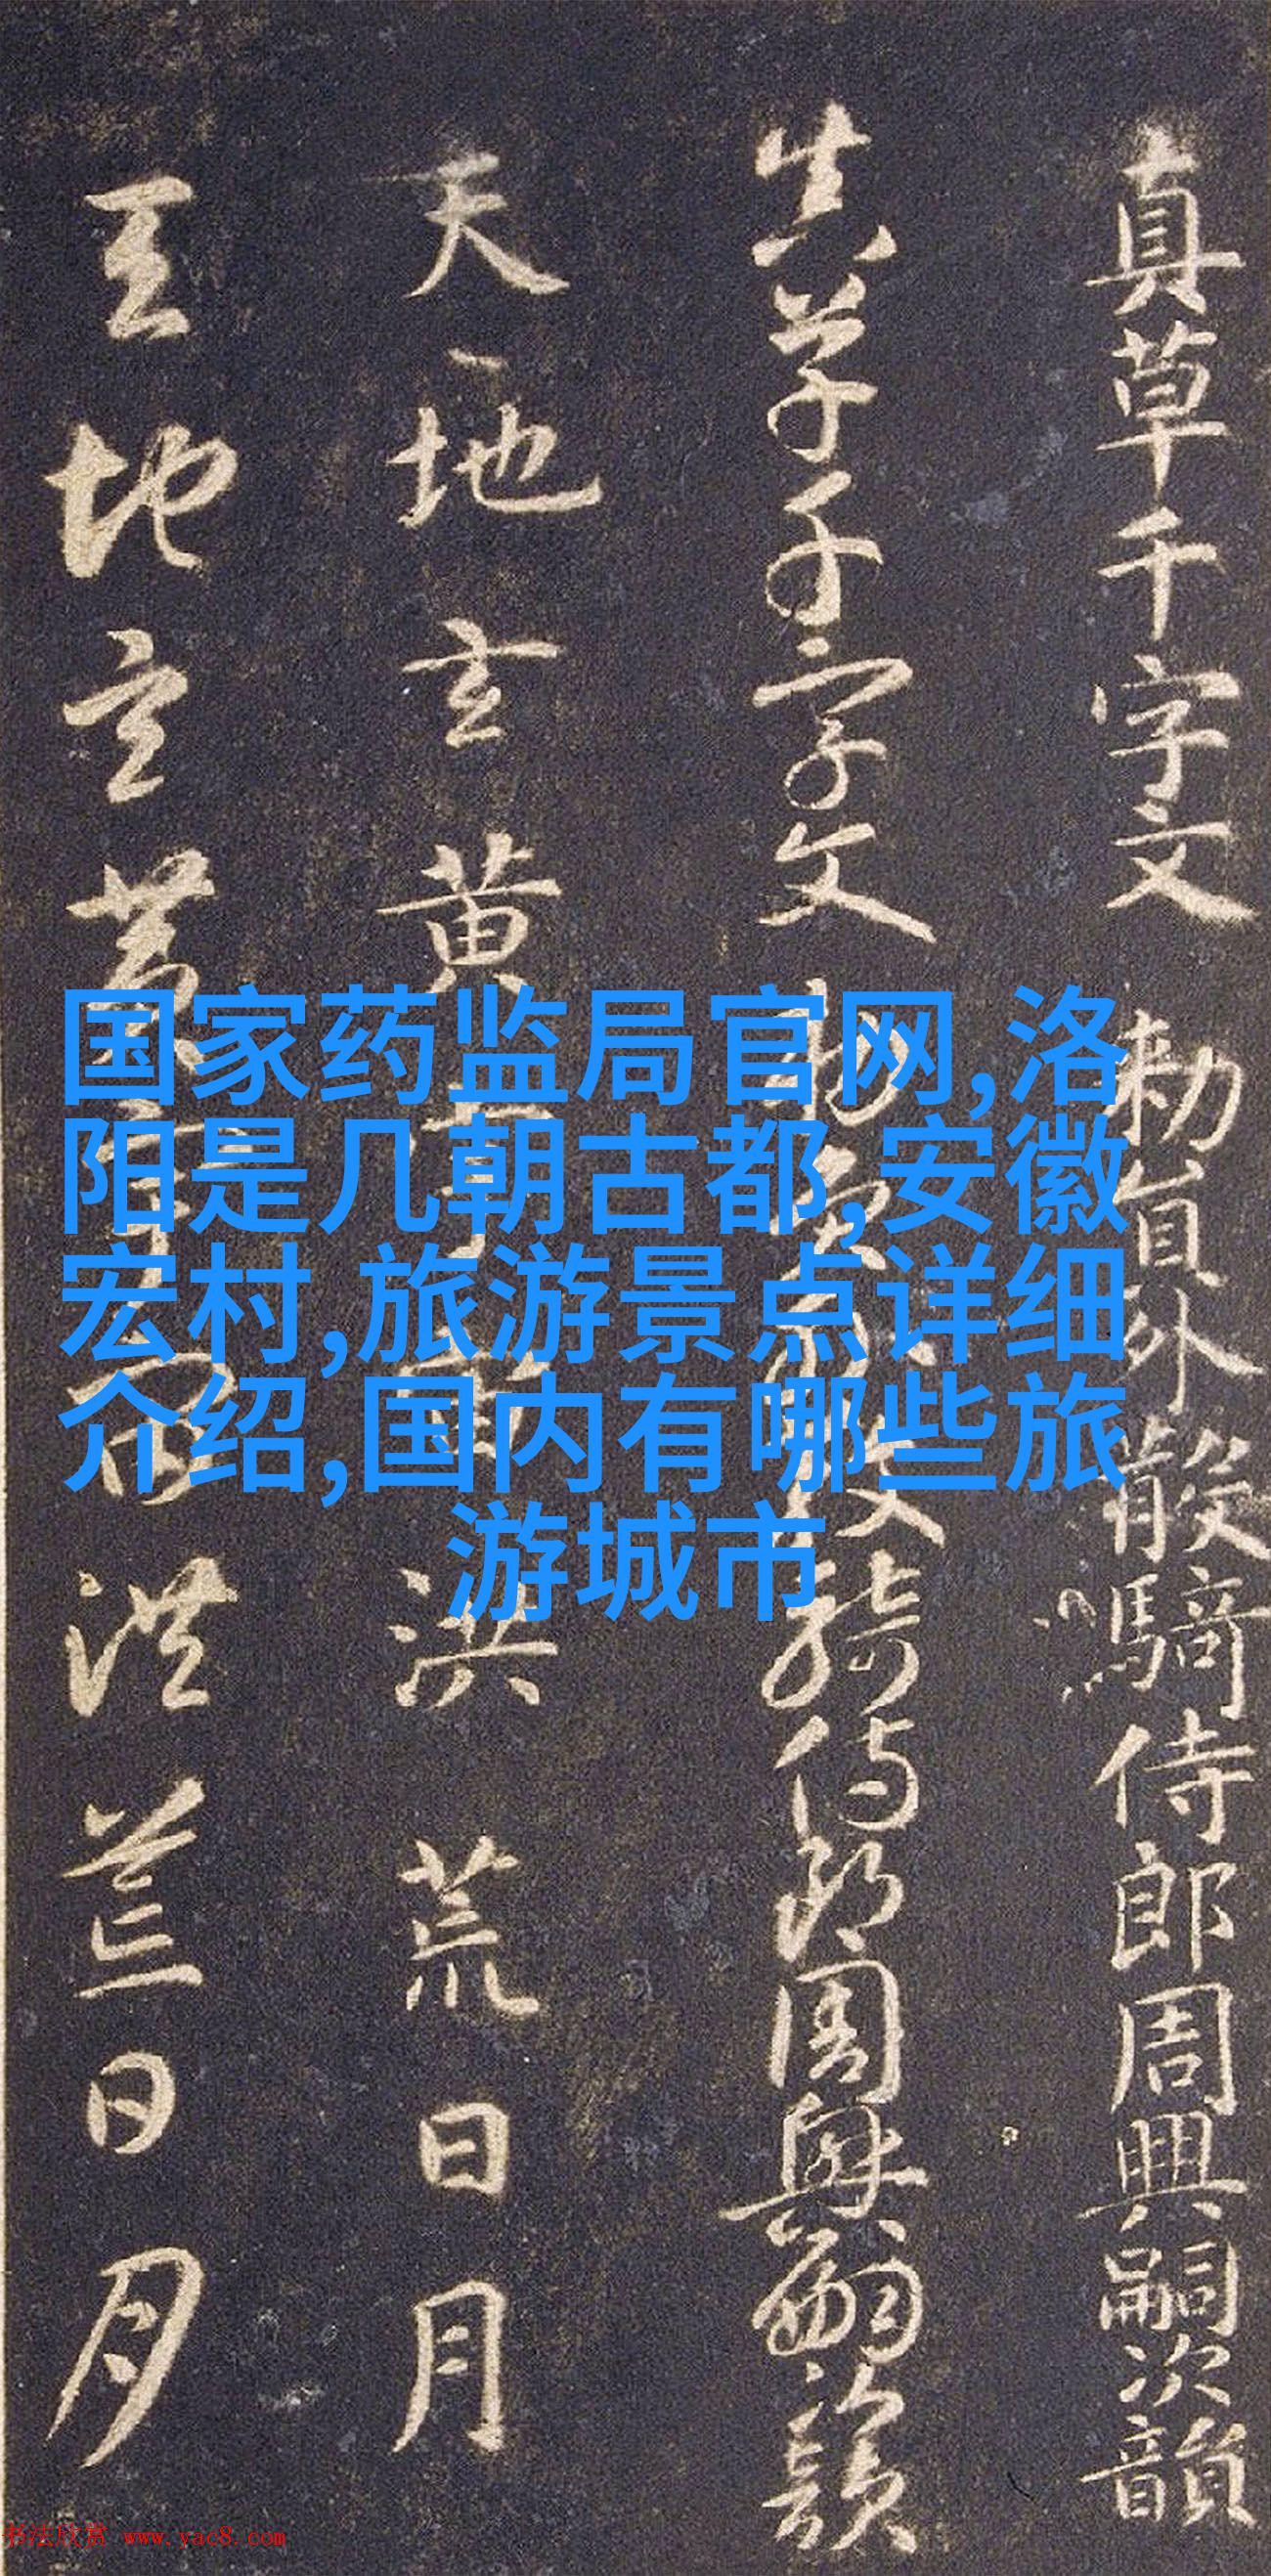 真草千字文 勑員外散騎侍郎周興嗣次韻
真草千字文
天地玄黄
洪荒日月
天地玄黄
洪荒日月
国家药监局官网,洛
阳是几朝古都,安徽
宏村,旅游景点详细
介绍,国内有哪些旅
游城市
书法欣赏 www.yac8.com